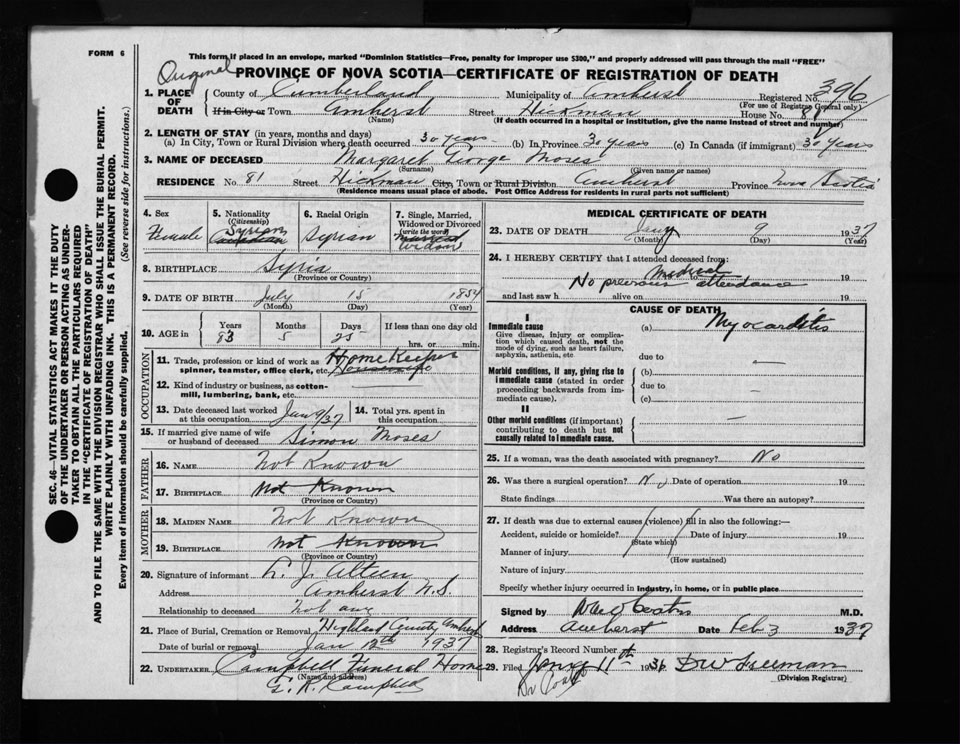 FORM 6
This form if placed in an envelope, marked "Dominion Statistics—Free, penalty for improper use $300," and properly addressed will pass through the mail "FREE"
Original
PROVINCE OF NOVA SCOTIA—CERTIFICATE OF REGISTRATION OF DEATH
396
1. PLACE OF DEATH
County of Cumberland Municipality of Amherst Registered No.
(For use of Registrar General only)
If in City or Town Amherst Street Hickman House No.
(Name) (If death occurred in a hospital or institution, give the name instead of street and number)
2. LENGTH OF STAY (in years, months and days)
(a) In City, Town or Rural Division where death occurred 30 years (b) In Province 30 years (c) In Canada (if immigrant) 30 years
3. NAME OF DECEASED Margaret George Moses
(Surname) (Given name or names)
RESIDENCE No. 81 Street Hickman City, Town or Rural Division Amherst Province Nova Scotia
(Residence means usual place of abode. Post Office Address for residents in rural parts not sufficient)
4. Sex
Female
5. Nationality
(Citizenship)
Syrian
Canadian
6. Racial Origin
Syrian
7. Single, Married, Widowed or Divorced
(write the word)
Married
Widow
8. BIRTHPLACE Syria
(Province or Country)
9. DATE OF BIRTH July 15 1854
(Month) (Day) (Year)
10. AGE in
Years Months Days If less than one day old
83 5 25 hrs. or min.
OCCUPATION
11. Trade, profession or kind of work as Home Keeper
spinner, teamster, office clerk, etc. Housewife
12. Kind of industry or business, as cotton-mill, lumbering, bank, etc.
13. Date deceased last worked at this occupation. Jan 9/37
14. Total yrs. spent in this occupation.
15. If married give name of wife or husband of deceased Simon Moses
FATHER
16. NAME Not Known
17. BIRTHPLACE Not Known
(Province or Country)
MOTHER
18. MAIDEN NAME Not Known
19. BIRTHPLACE Not Known
(Province or Country)
20. Signature of informant J. Alteen
Address Amherst N.S.
Relationship to deceased not any
21. Place of Burial, Cremation or Removal Highland Amherst
Date of burial or removal Jan 12th 1937
22. UNDERTAKER Campbell Funeral Home
(Name and address)
Campbell
MEDICAL CERTIFICATE OF DEATH
23. DATE OF DEATH Jany 9 1937
(Month) (Day) (Year)
24. I HEREBY CERTIFY that I attended deceased from:
Medical
No previous to attendance 19
and last saw h alive on 19
CAUSE OF DEATH
I
Immediate cause
Give disease, injury or complication which caused death, not the mode of dying, such as heart failure, asphyxia, asthenia, etc
(a) Myocarditis
due to —
Morbid conditions, if any, giving rise to immediate cause (stated in order proceeding backwards from immediate cause).
(b)
due to —
(c)
II
Other morbid conditions (if important) contributing to death but not causally related to immediate cause. —
25. If a woman, was the death associated with pregnancy? No
26. Was there a surgical operation? No Date of operation 19
State findings Was there an autopsy?
27. If death was due to external causes (violence) fill in also the following:—
Accident, suicide or homicide? Date of injury 19
(State which)
Manner of injury
(How sustained)
Nature of injury
Specify whether injury occurred in industry, in home, or in public place
Signed by M.D.
Address Amherst Date Feb 3 1937
28. Registrar's Record Number
29. Filed 11th 1936 D W Freeman
(Division Registrar)
SEC. 46 VITAL STATISTICS ACT MAKES IT THE DUTY
OF THE UNDERTAKER OR PERSON ACTING AS UNDER-
TAKER TO OBTAIN ALL THE PARTICULARS REQUIRED
IN THE "CERTIFICATE OF REGISTRATION OF DEATH"
AND TO FILE THE SAME WITH THE DIVISION REGISTRAR WHO SHALL ISSUE THE BURIAL PERMIT.
WRITE PLAINLY WITH UNFADING INK. THIS IS A PERMANENT RECORD.
Every item of information should be carefully supplied. (See reverse side for instructions.)